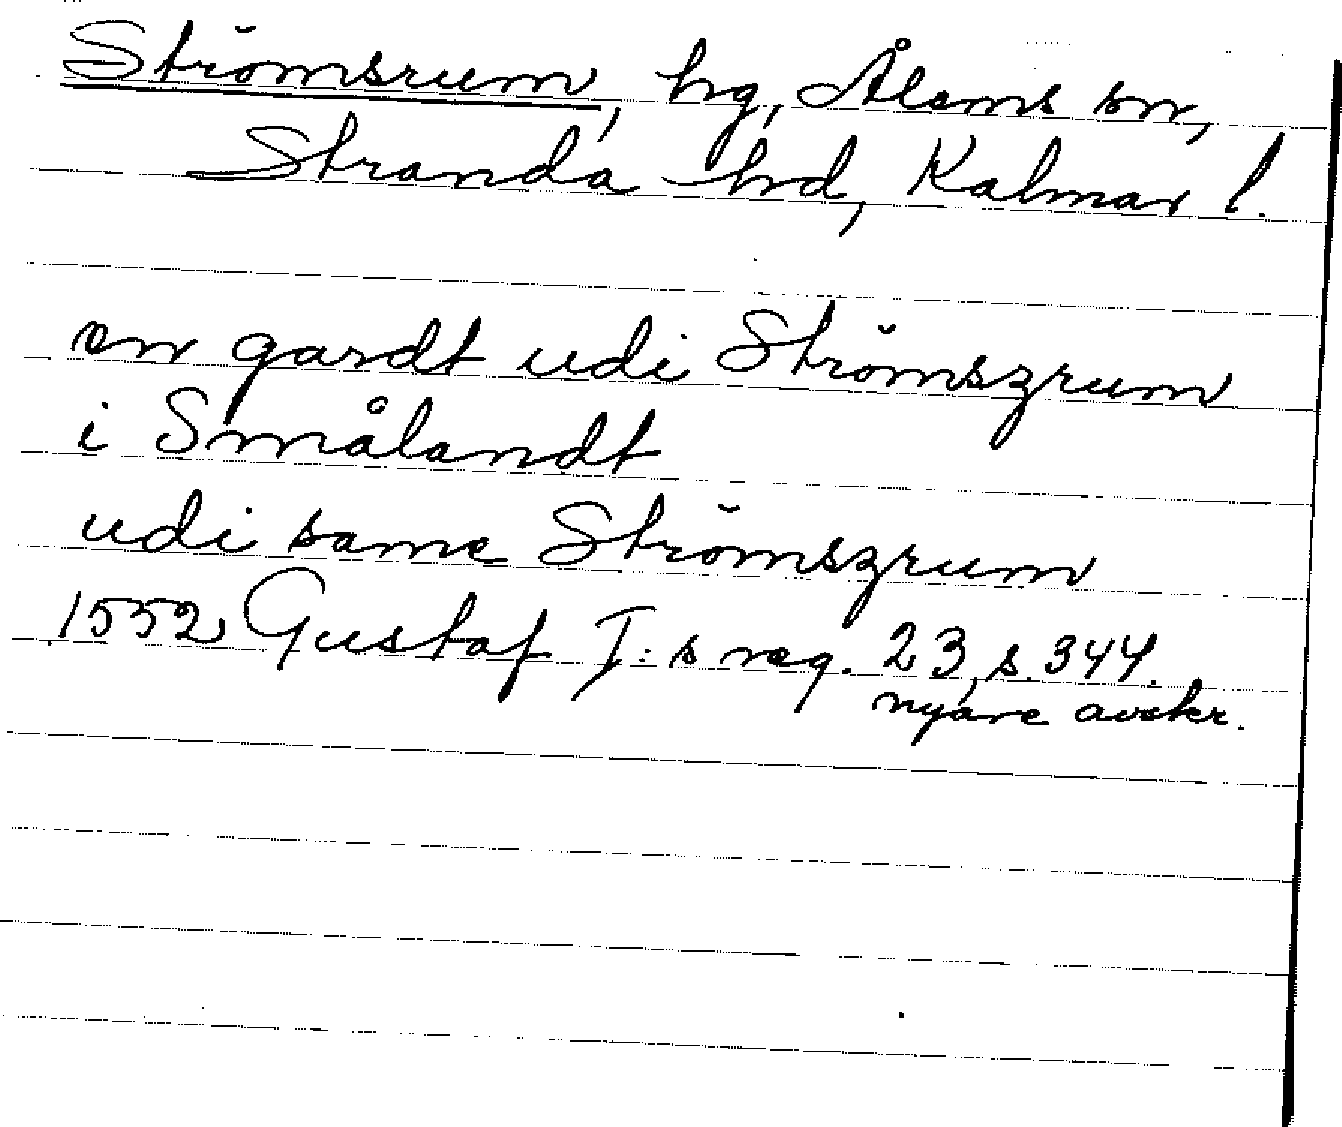 Strömsrum, hg, Ålems sn,
Stranda hd, Kalmar l.
en gardt udi Strömszrum
i Smålandt
udi same Strömszrum
1552 Gustaf I:s reg. 23, s. 344.
nyare avskr.